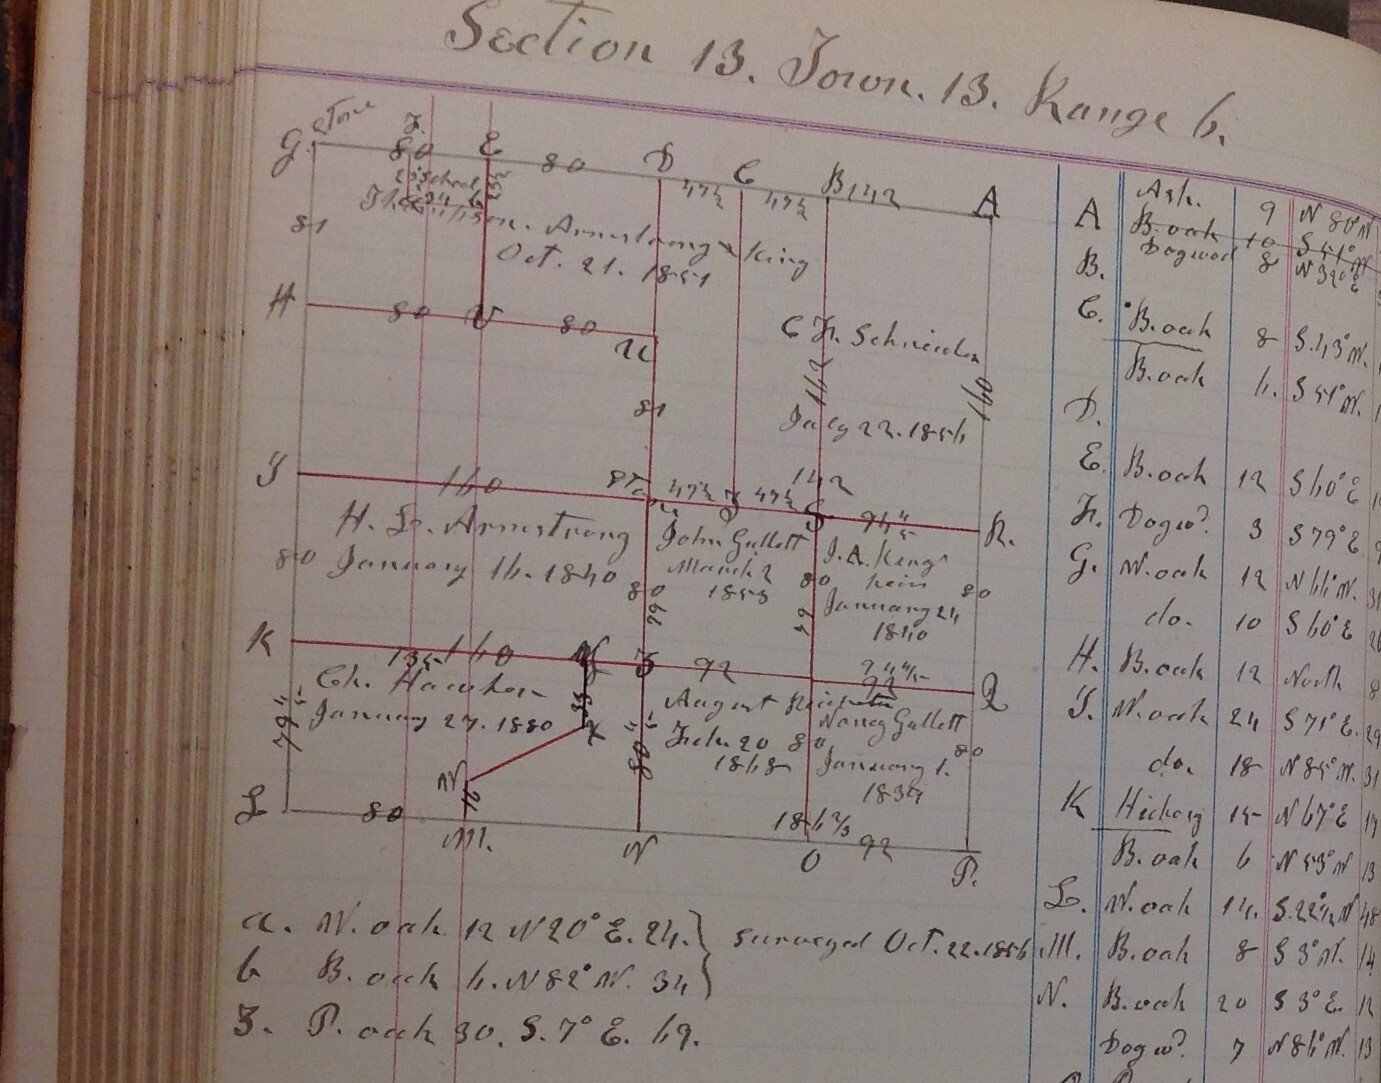 Section 13. Town. 13. Range 6.
G. Stone F. E D C B A
80 80 47½ 47½ 142
81
Armstrong & King
Oct. 21. 1851
H 80 V 80 U
C Fr. Schneider
162 160
81
July 22. 1856
I 160 47½ 47½ 142 S 94 R.
H. L. Armstrong
January 16. 1840
80
John Gullett
March 2
1853
80
J. A. King
heirs
January 24
1840
80 80
K 135 160 92 Q
Ch.
January 27. 1880
August
Feb. 20
1868
Nancy Gullett
January 1.
1834
80 80
W 10
L 80 M. N O 92 P.
a. W. oak 12 N 20° E. 24. } surveyed Oct. 22. 1856
b B. oak 6. N 82° W. 34 }
Z. P. oak 30. S. 7° E. 69.
A Ash. 9 N 80° W
B. oak 10 S 51° W
B. Dogwood 8 N 32° E
C. B. oak 8 S. 43° W.
B. oak 6. S 51° W.
D.
E. B. oak 12 S 60° E
F. Dogw? 3 S 79° E.
G. W. oak 12 N 66° W.
do. 10 S 60° E
H. B. oak 12 North
I. W. oak 24 S 71° E. 29
do. 18 N 85° W. 31
K Hickory 15 N 67° E
B. oak 6 N 53° W 13
L. W. oak 14. S. 22½° W 48
M. B. oak 8 S 3° W. 14
N. B. oak 20 S 3° E. 12
Dogw? 7 N 86° W. 13